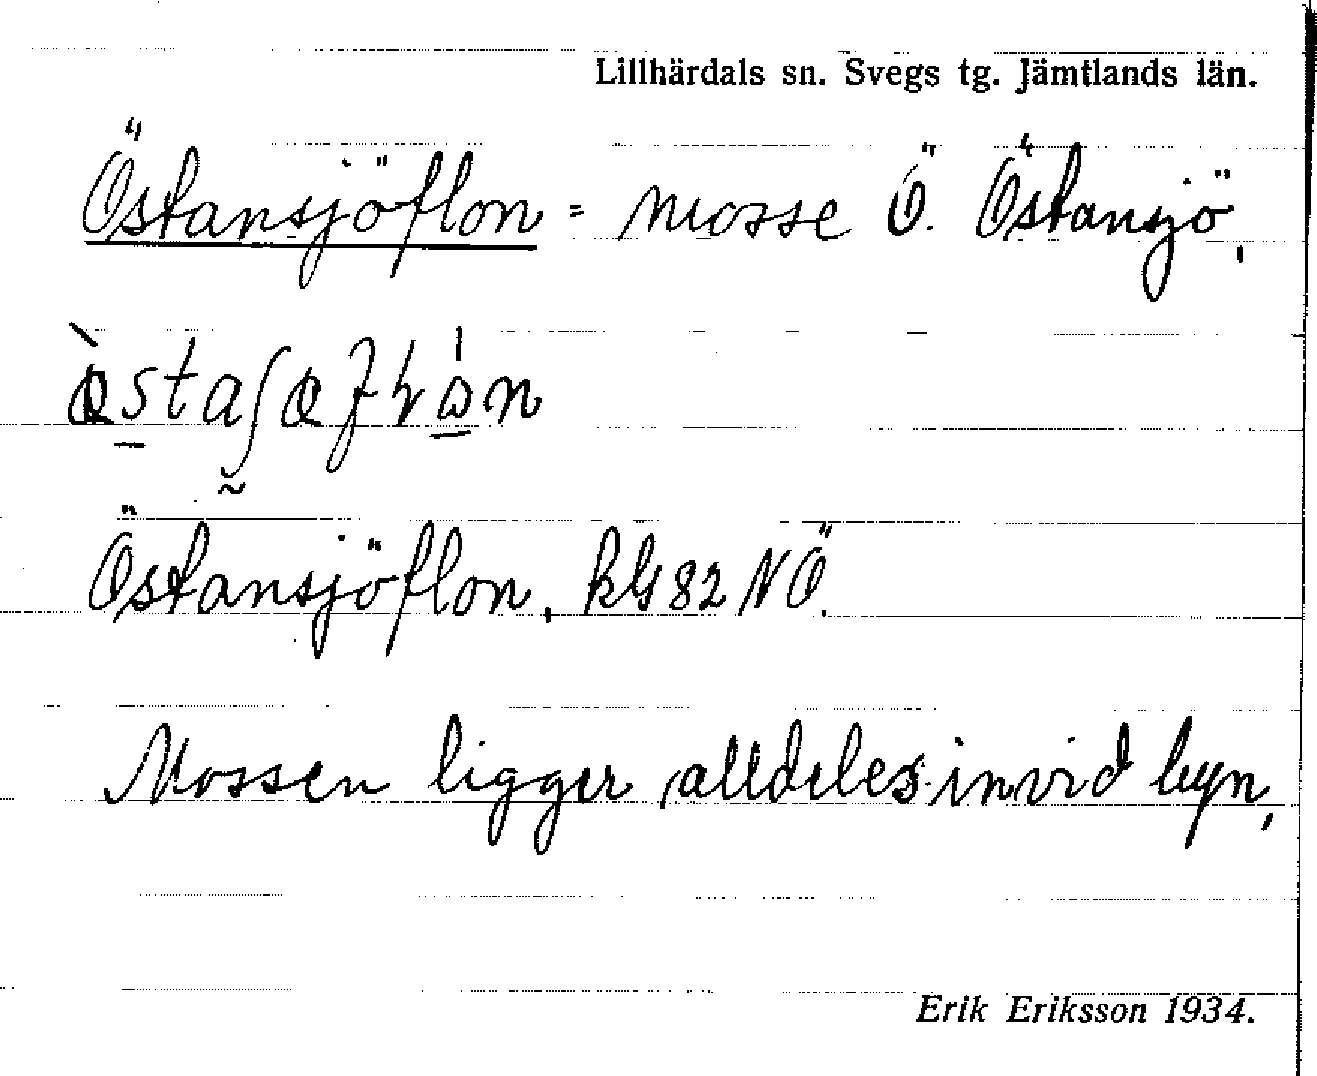 Lillhärdals sn. Svegs tg. Jämtlands län.
Östansjöflon = mosse Ö. Östansjö,
Östansjöflon, kG 82 NÖ.
Mossen ligger alldeles invid byn,
Erik Eriksson 1934.